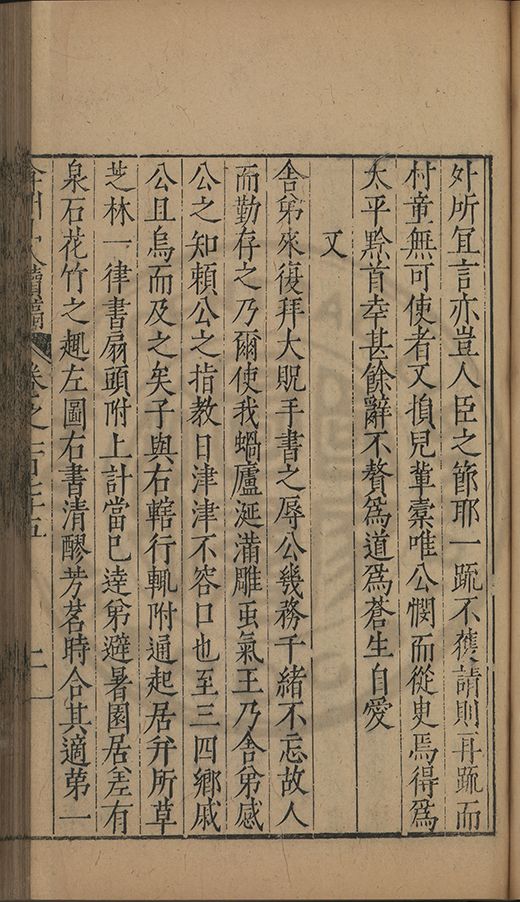 外所冝言亦豈人臣之節耶一䟽不獲請則再䟽而
村童無可使者又損兒輩槖唯公憫而從㬰焉得爲
太平黔首幸甚餘辭不贅爲道爲蒼生自愛
又
舍弟來復拜大貺手書之辱公幾務千緒不忘故人
而勤存之乃爾使我蝸廬涎滿雕䖝氣王乃舍弟感
公之知頼公之指教日津津不容口也至三四鄉戚
公且烏而及之矣子與右轄行輒附通起居幷所草
芝林一律書扇頭附上計當已達弟避暑園居差有
泉石花竹之趣左圖右書清醪芳茗時合其適第一
弇州山人續稿 卷之一百七十五 二